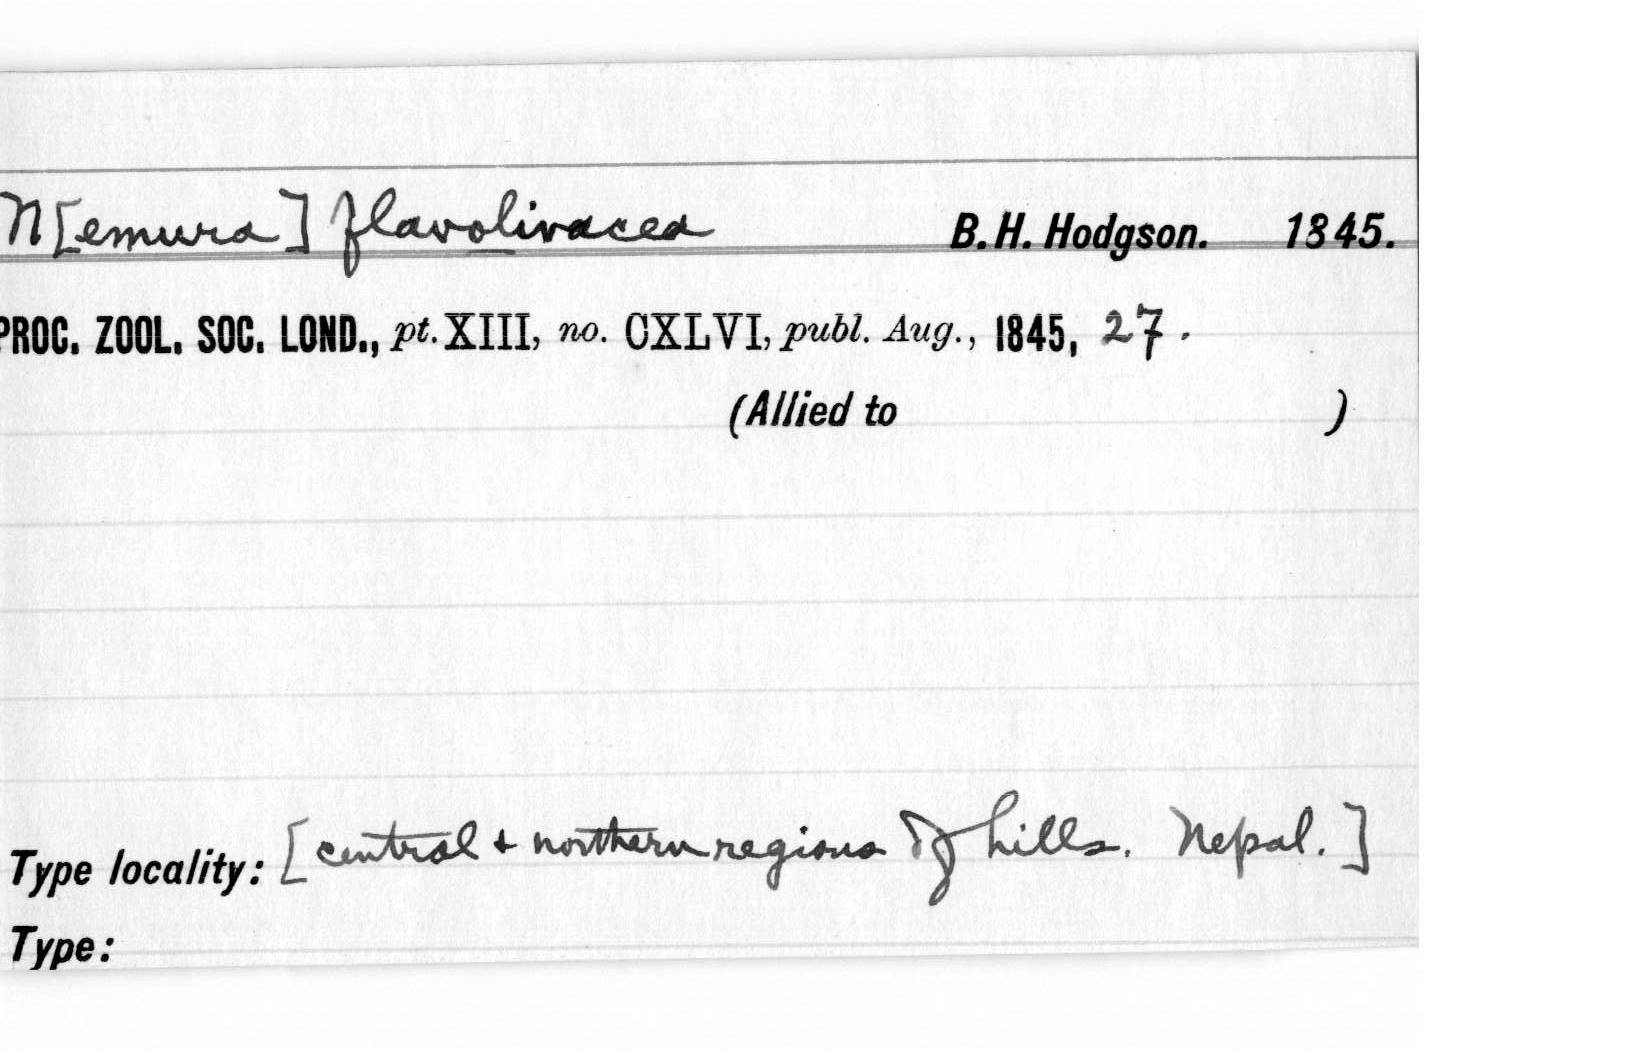 N[emura] flavolivacea B. H. Hodgson. 1845.
PROC. ZOOL. SOC. LOND., pt. XIII, no. CXLVI, publ. Aug., 1845, 27.
(Allied to )
Type locality: [central + northern regions of hills. Nepal.]
Type: